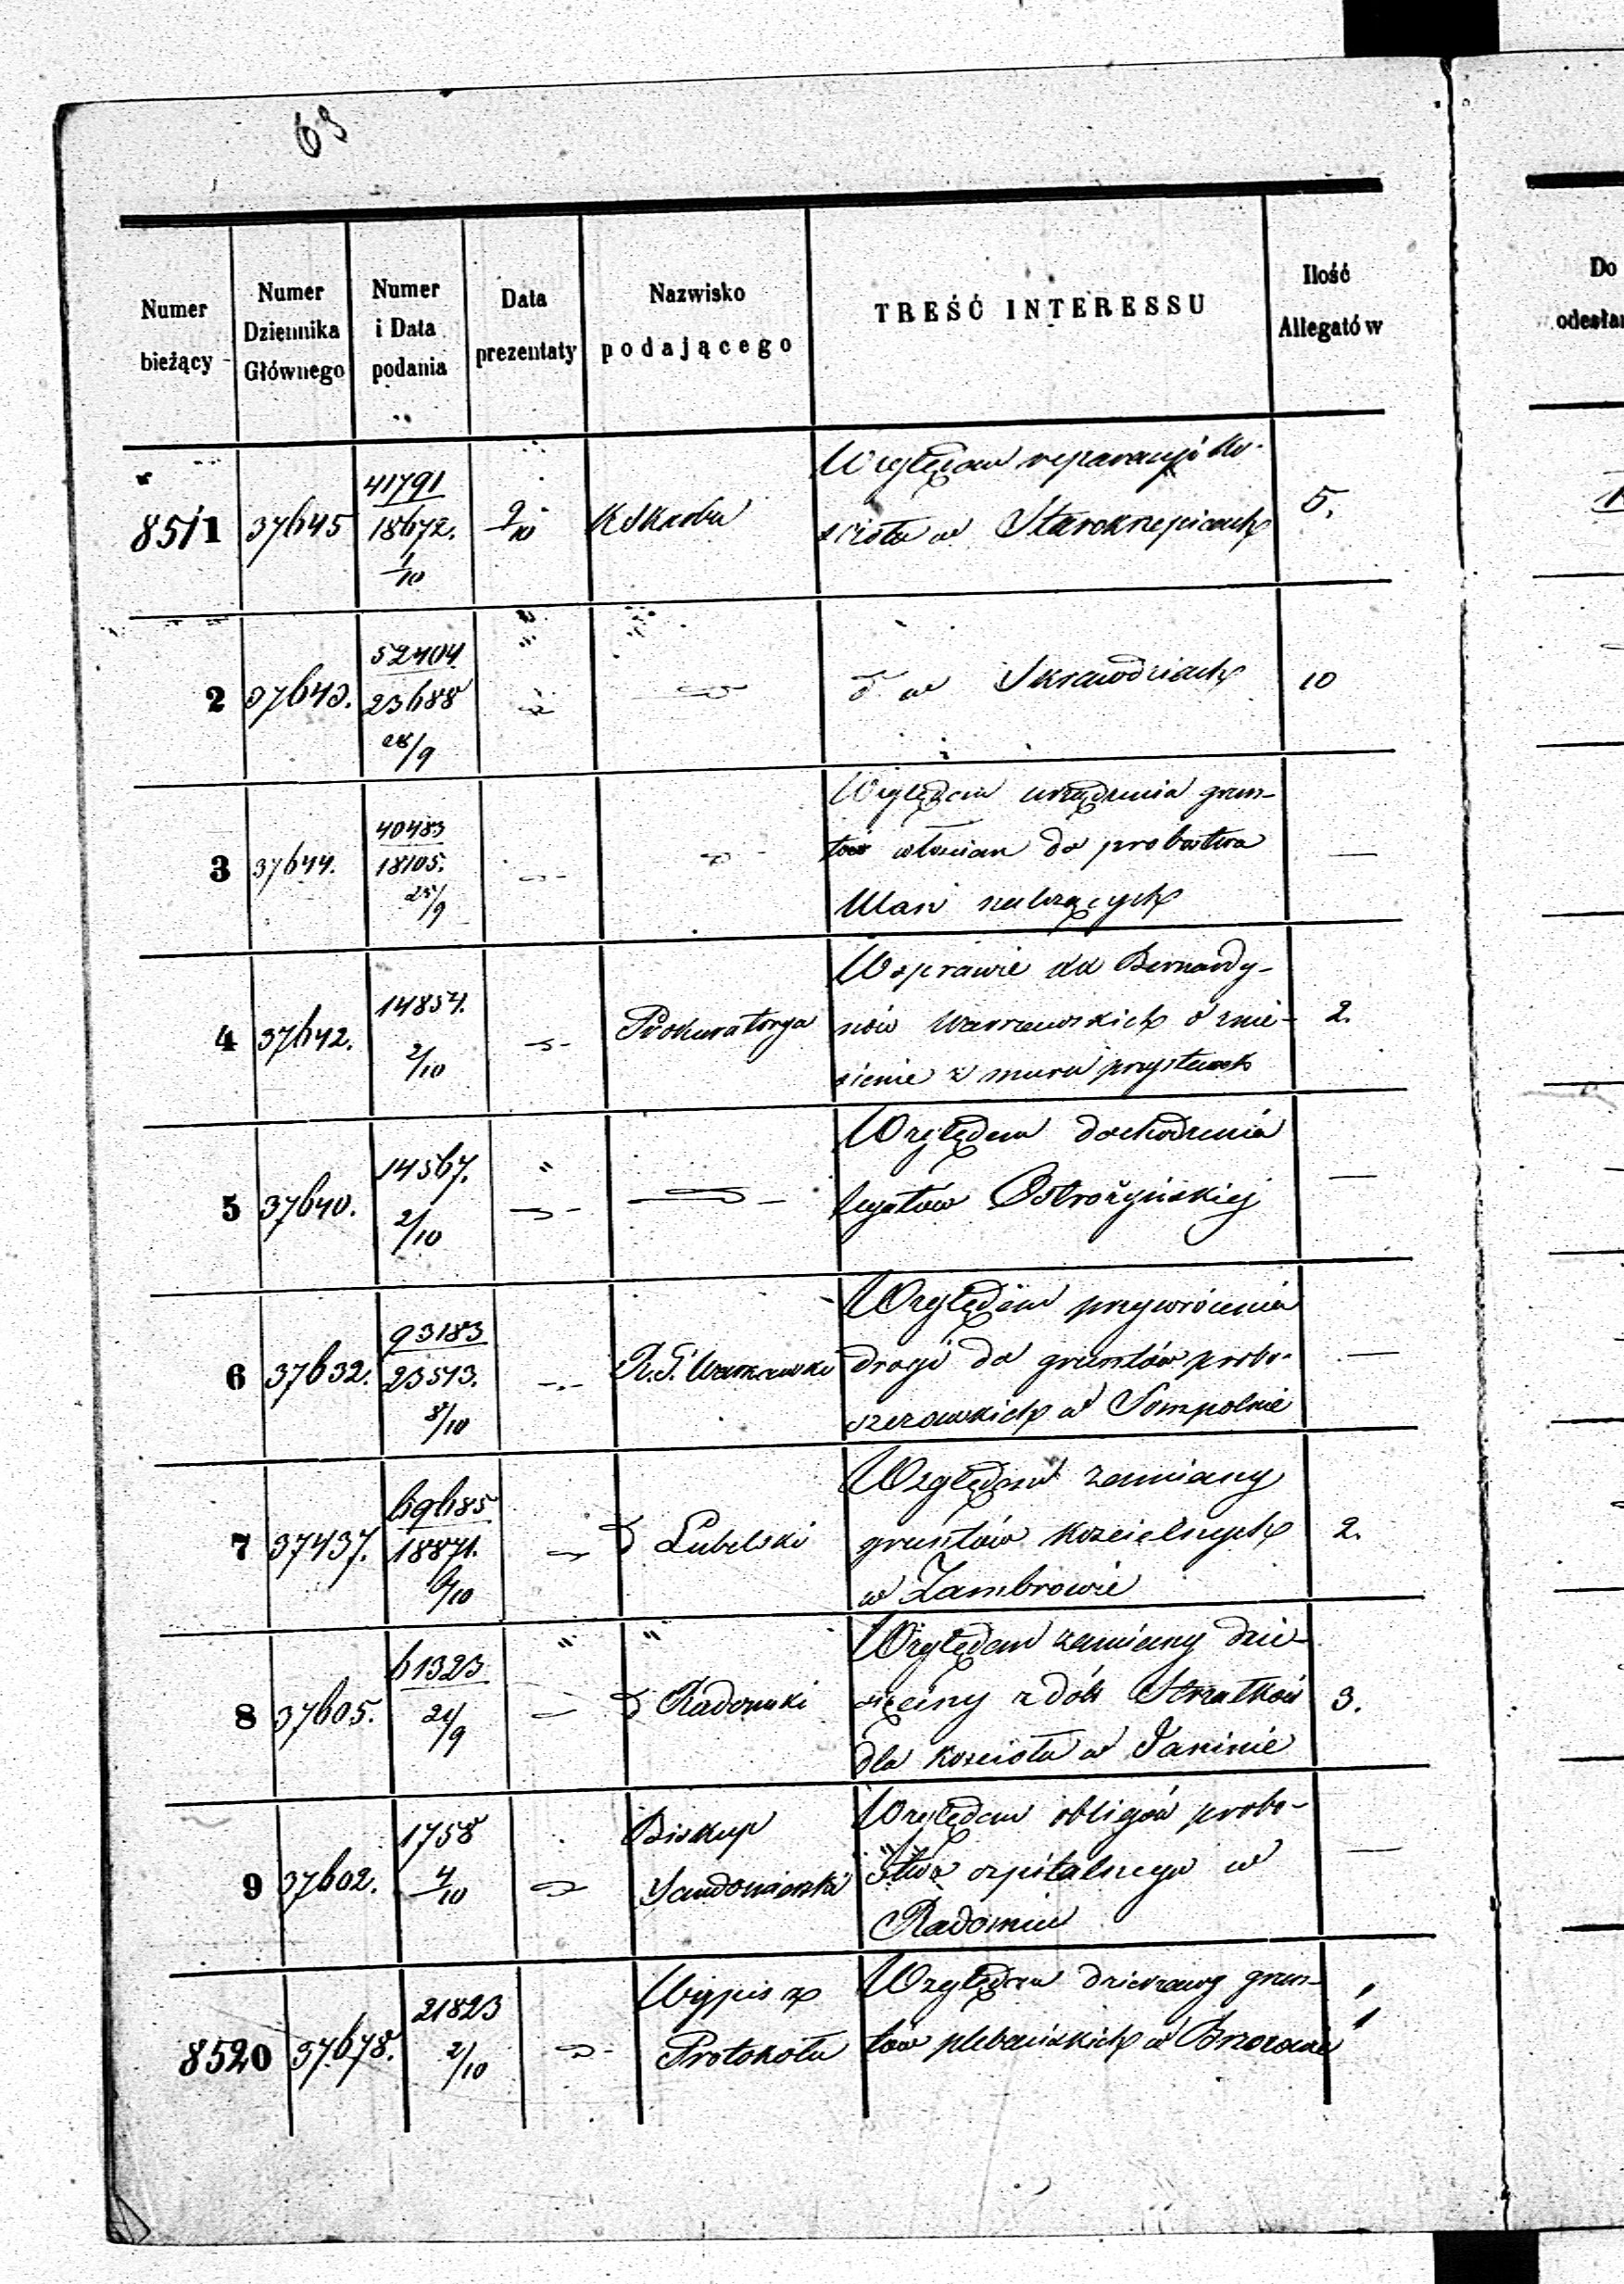 63
Numer bieżący
Numer Dziennika Głównego
Numer i Data podania
Data prezentaty
Nazwisko podającego
TREŚĆ INTERESSU
Ilość Allegatów
Do
odesłan
8511 37645 41791 / 18672. 1/10 9/10 KSkarbu
Względem reparacyi Ko-
scioła w Starokrzepicach
5.
2 37643. 52404 / 23688 28/9
w Skrawdziach
10
3 37644. 40483 / 18105. 25/9
Względem urządzenia grun-
tów włościan do probostwa
Ulan należących
—
4 37642. 14854. 2/10 Prokuratorya
W sprawie XX Bernardy-
nów Warszawskich o znie-
sienie z muru przystawek
2.
5 37640. 14567. 2/10
Względem dochodzenia
legatów Ostrożyńskiej
—
6 37632. 93183 / 23513. 8/10 R. G. Warszawski
Względem przywrócenia
drogi do gruntów probo-
szczowskich w Sompolnie
—
7 37437. 69685 / 18871. 6/10 Lubelski
Względem zamiany
gruntów kościelnych
w Zambrowie
2.
8 37605. 61323 21/9 Radomski
Względem zamiany dzie-
sięciny z dóbr Strzałków
dla kościoła w Janinie
3.
9 37602. 1758 4/10 Biskup
Sandomierski
Względem obligów probo-
stwa szpitalnego w
Radomiu
—
8520 37678. 21823 2/10 Wypis z
Protokołu
Względem dzierżawy grun-
tów plebańskich w Brzozowie
1